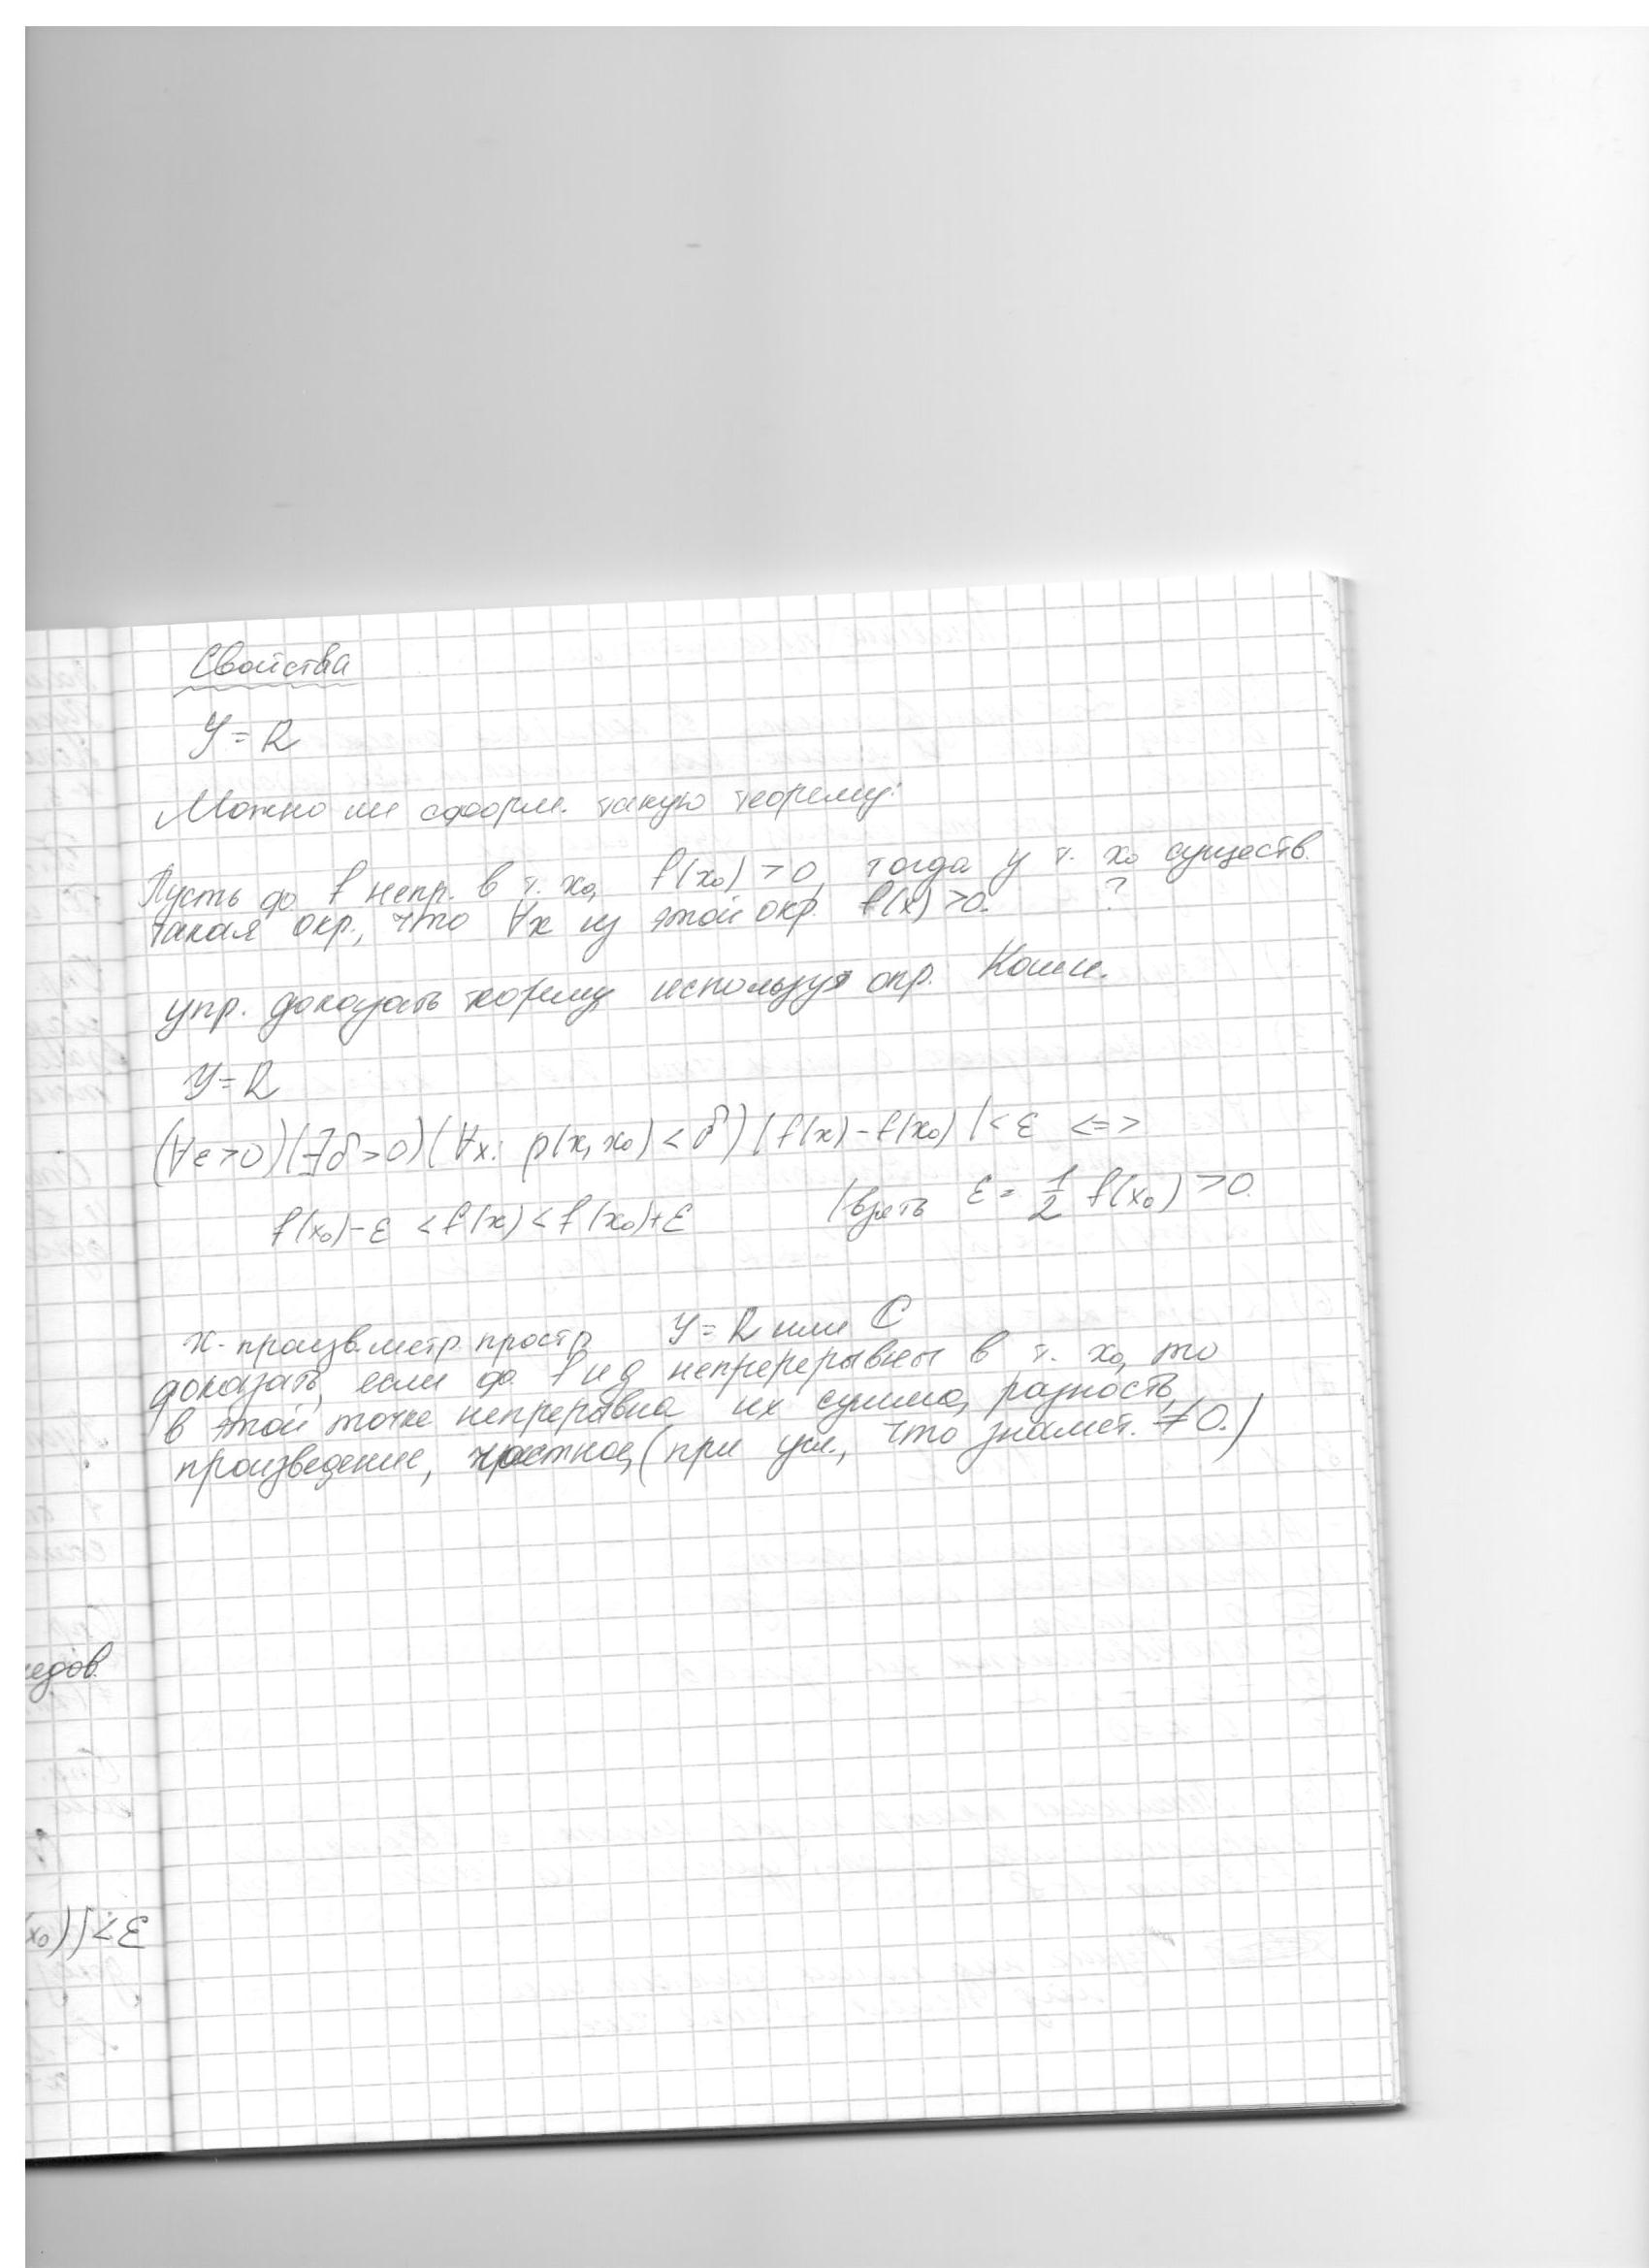 Свойства
Y = R
Можно ли сформ. такую теорему:
Пусть ф f непр. в т. x₀, f(x₀) > 0, тогда у т. x₀ существ.
такая окр., что ∀x из этой окр. f(x) > 0. ?
упр. доказать теорему используя опр. Коши.
Y = R
(∀ε > 0)(∃δ > 0)(∀x: ρ(x, x₀) < δ) |f(x) - f(x₀)| < ε <=>
f(x₀) - ε < f(x) < f(x₀) + ε /взять ε = 1/2 f(x₀) > 0.
X - произв. метр. простр. Y = R или C
доказать, если ф. f и g непрерывны в т. x₀, то
в этой точке непрерывна их сумма, разность,
произведение, частное, (при усл., что знамен. ≠ 0.)
едов.
x₀)) < ε